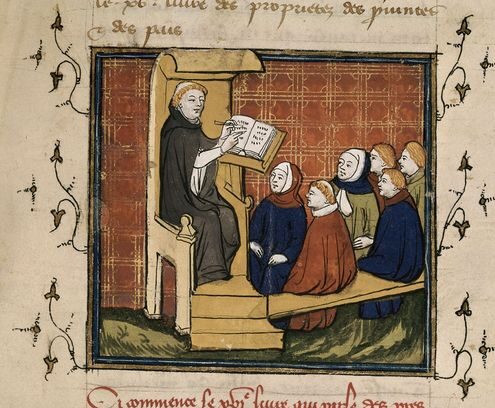 liure des proprietez des
& des pais
Ci commence le xvie liure qui parle des